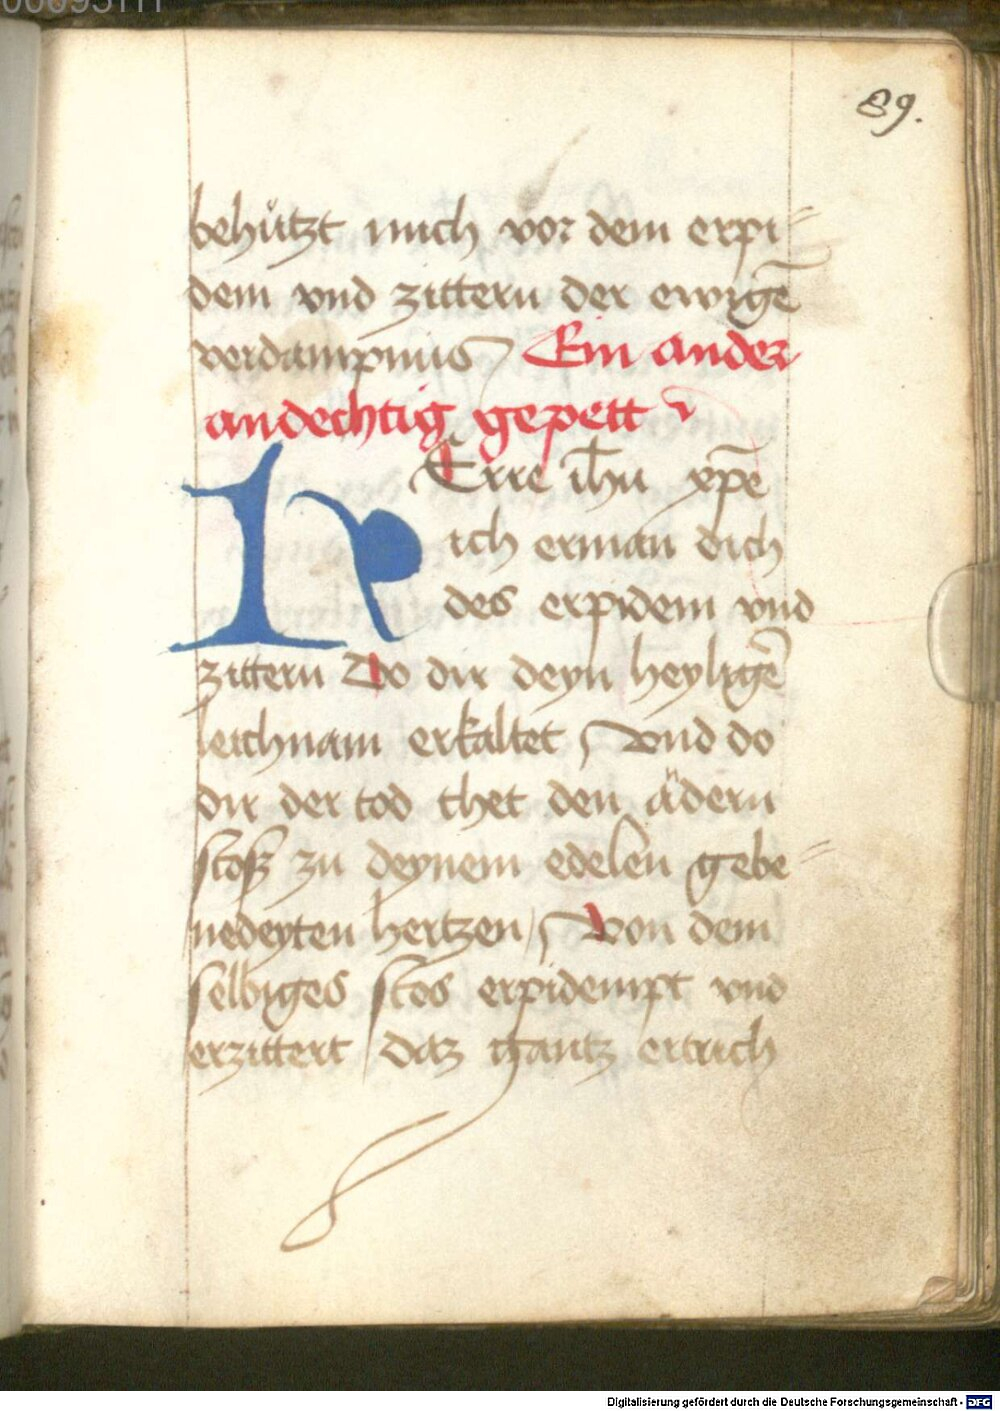 89.
behützt mich vor dem erpi=
dem vnd zittern der ewigē
verdampnus Ein ander
andechtig gepett
HErre ih̄u xp̄e
ich erman dich
des erpidem vnd
zittern Do dir deyn heyligē
leichnam erkaltet / Vnd do
dir der tod thet den ädern
stosz zu deynem edelen gebe=
nedeyten hertzen / Von dem
selbiges stos erpidempt vnd
erzittert / daz gantz ertrich
Digitalisierung gefördert durch die Deutsche Forschungsgemeinschaft - DFG